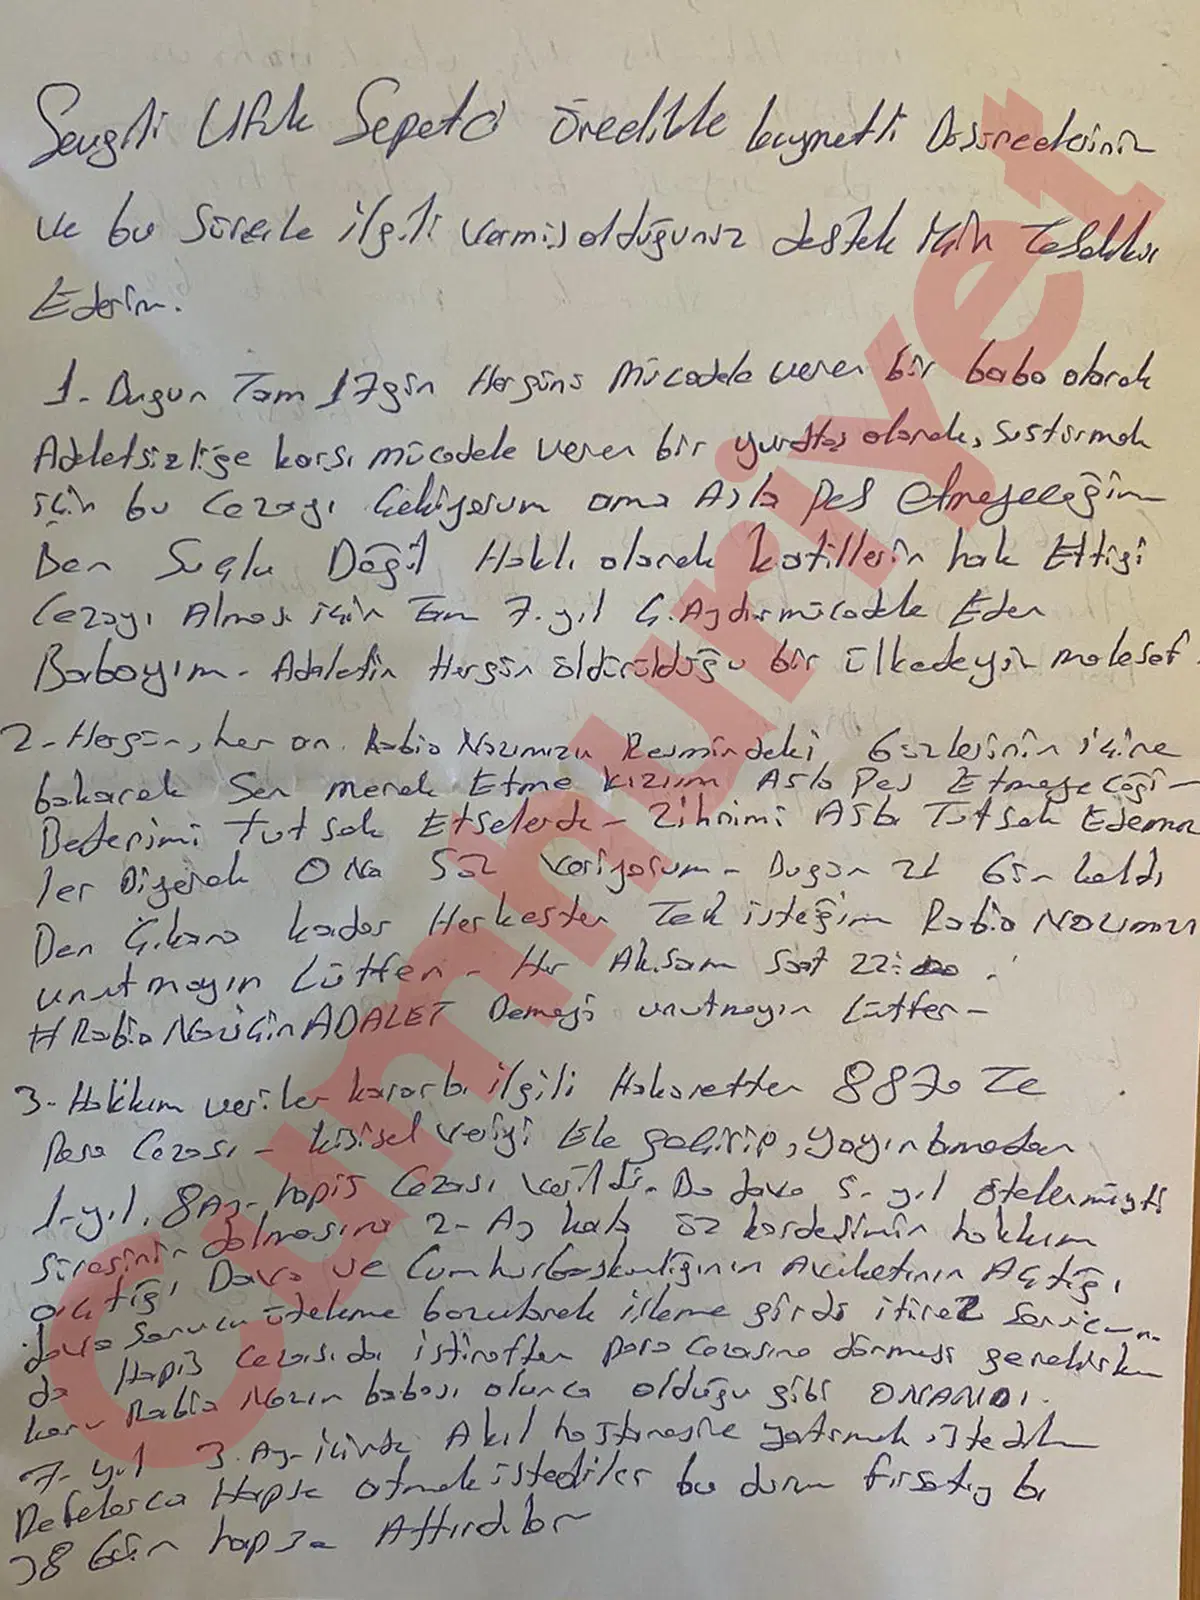 Sevgili Ufuk Sepetci öncelikle kıymetli Düşüncelerinin
ve bu Sürecle ilgili vermiş olduğunuz destek için Teşekkür
Ederim.
1- Bugun Tam 17 gün Hergünü Mücadele veren bir baba olarak
Adaletsizliğe karşı mücadele veren bir yurdtaş olarak, susturmak
için bu cezayı Çekiyorum ama Asla pes etmeyeceğim
Ben Suçlu Değil Haklı olarak katillerin hak Ettiği
Cezayı Alması için Tam 7. yıl Aydır mücadele Eden
Babayım - Adaletin Hergün öldürüldüğü bir ülkedeyiz malesef.
2- Hergün, her an Rabia Nazımızın Resmindeki Gözlerinin içine
bakarak Sen merak Etme kızım Asla Pes Etmeyeceği-
Bedenimi Tutsak Etselerde - Zihnimi Asla Tutsak Edemez
ler Diyerek ONa Söz Veriyorum - Bugün 21 Gün kaldı
Den Çıkana kadar Herkesten Tek isteğim Rabia Nazımızı
unutmayın Lütfen - Her Akşam Saat 22:00
#RabiaNazİçinADALET Demeyi unutmayın Lütfen -
3- Hakkım verilen kararla ilgili Hakaretten 8870 TL
Para Cezası - kişisel veriyi Ele geçirip, yayınlamadan
1-yıl, 8 Ay- hapis Cezası verildi- Bu dava 5- yıl ötelenmişti
Süresinin dolmasına 2- Ay kala öz kardeşimin hakkım
açtığı Dava ve Cumhurbaşkanlığının Avukatının Açtığı
dava sonucu öteleme bozularak işleme girdi itiraz sonucun-
da Hapis Cezasıda istinaften para cezasına dönmesi gerekirken
konu Rabia Nazın babası olunca olduğu gibi ONANDI.
7- yıl 3. Ay- içinde Akıl hastanesine yatırmak istediler
Defalarca Hapse Atmak istediler bu durum fırsatıy la
38 Gün hapse Attırdılar